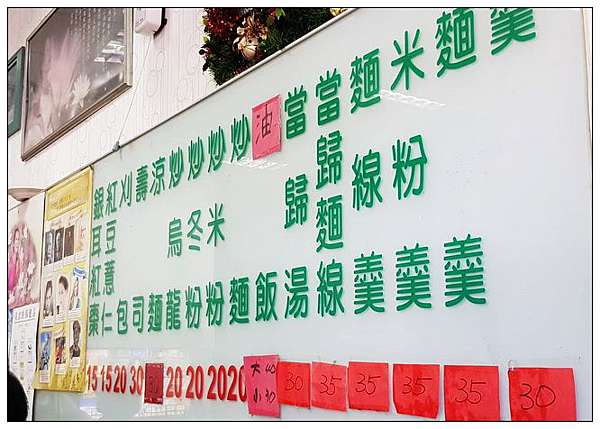 羹
30
麵羹
35
米粉羹
35
麵線羹
35
當歸麵線
35
當歸湯
30
油飯
大40
小30
炒麵
20
炒米粉
20
炒冬粉
20
炒烏龍
20
涼麵
壽司
30
刈包
20
紅豆薏仁
15
銀耳紅棗
15